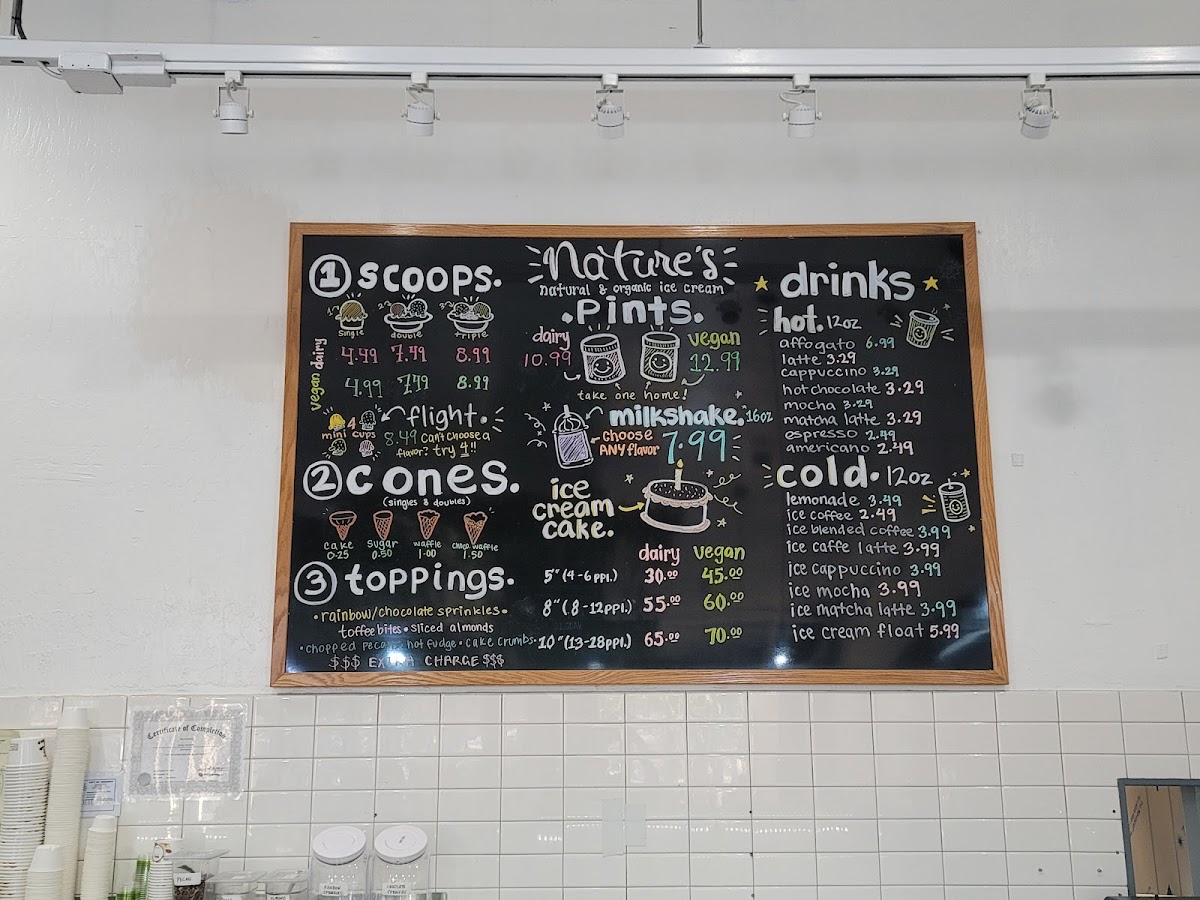 1 scoops.
single double triple
dairy 4.49 7.49 8.99
vegan 4.99 7.49 8.99
4 mini cups
flight.
8.49 Can't choose a
flavor? try 1!!
2 cones.
(singles & doubles)
cake sugar waffle choco. waffle
0.25 0.50 1.00 1.50
3 toppings.
• rainbow/chocolate sprinkles •
toffee bites • sliced almonds
• chopped hot fudge • cake crumbs •
$$$ EXTRA CHARGE $$$
Nature's
natural & organic ice cream
.pints.
dairy vegan
10.99 12.99
take one home!
milkshake. 16oz
choose
ANY flavor
7.99
ice
cream
cake.
dairy vegan
5" (4-6 ppl.) 30.00 45.00
8" (8-12ppl.) 55.00 60.00
10" (13-28ppl.) 65.00 70.00
drinks
hot. 12oz
affogato 6.99
latte 3.29
cappuccino 3.29
hot chocolate 3.29
mocha 3.29
matcha latte 3.29
espresso 2.49
americano 2.49
cold. 12oz
lemonade 3.49
ice coffee 2.49
ice blended coffee 3.99
ice caffe latte 3.99
ice cappuccino 3.99
ice mocha 3.99
ice matcha latte 3.99
ice cream float 5.99
Certificate of Completion
PECAN
RAINBOW
SPRINKLES
CHOCOLATE
SPRINKLES